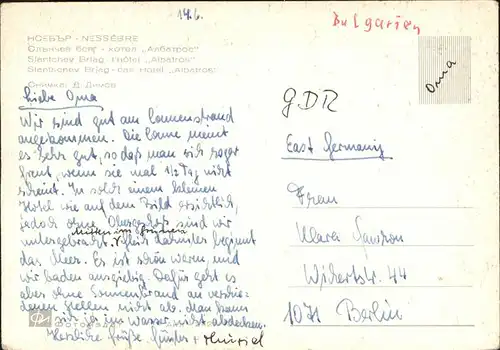 14.6.
Bulgarien
НЕСЕБЪР - NESSÈBRE
Слънчев бряг - хотел „Албатрос“
Slantchev Briag - l'hôtel „Albatros“
Slantschev Brjag - das Hotel „Albatros“
Снимка: Д. Димов
Oma
Liebe Oma
Wir sind gut am Sonnenstrand
angekommen. Die Sonne meint
es sehr gut, so daß man sich sogar
freut, wenn sie mal 1/2 Tag nicht
scheint. In solch einem kleinen
Hotel wie auf dem Bild ersichtlich,
jedoch ohne Obergeschoß sind wir
mitten im Grünen
untergebracht. Gleich dahinter beginnt
das Meer. Es ist schön warm, und
wir baden ausgiebig. Dafür geht es
aber ohne Sonnenbrand an verschie-
denen Stellen nicht ab. Man kann
sich ja im Wasser nicht abdecken.
Herzliche Grüße Günter +
GDR
East Germany
Frau
Klara
Wichertstr. 44
1071 Berlin